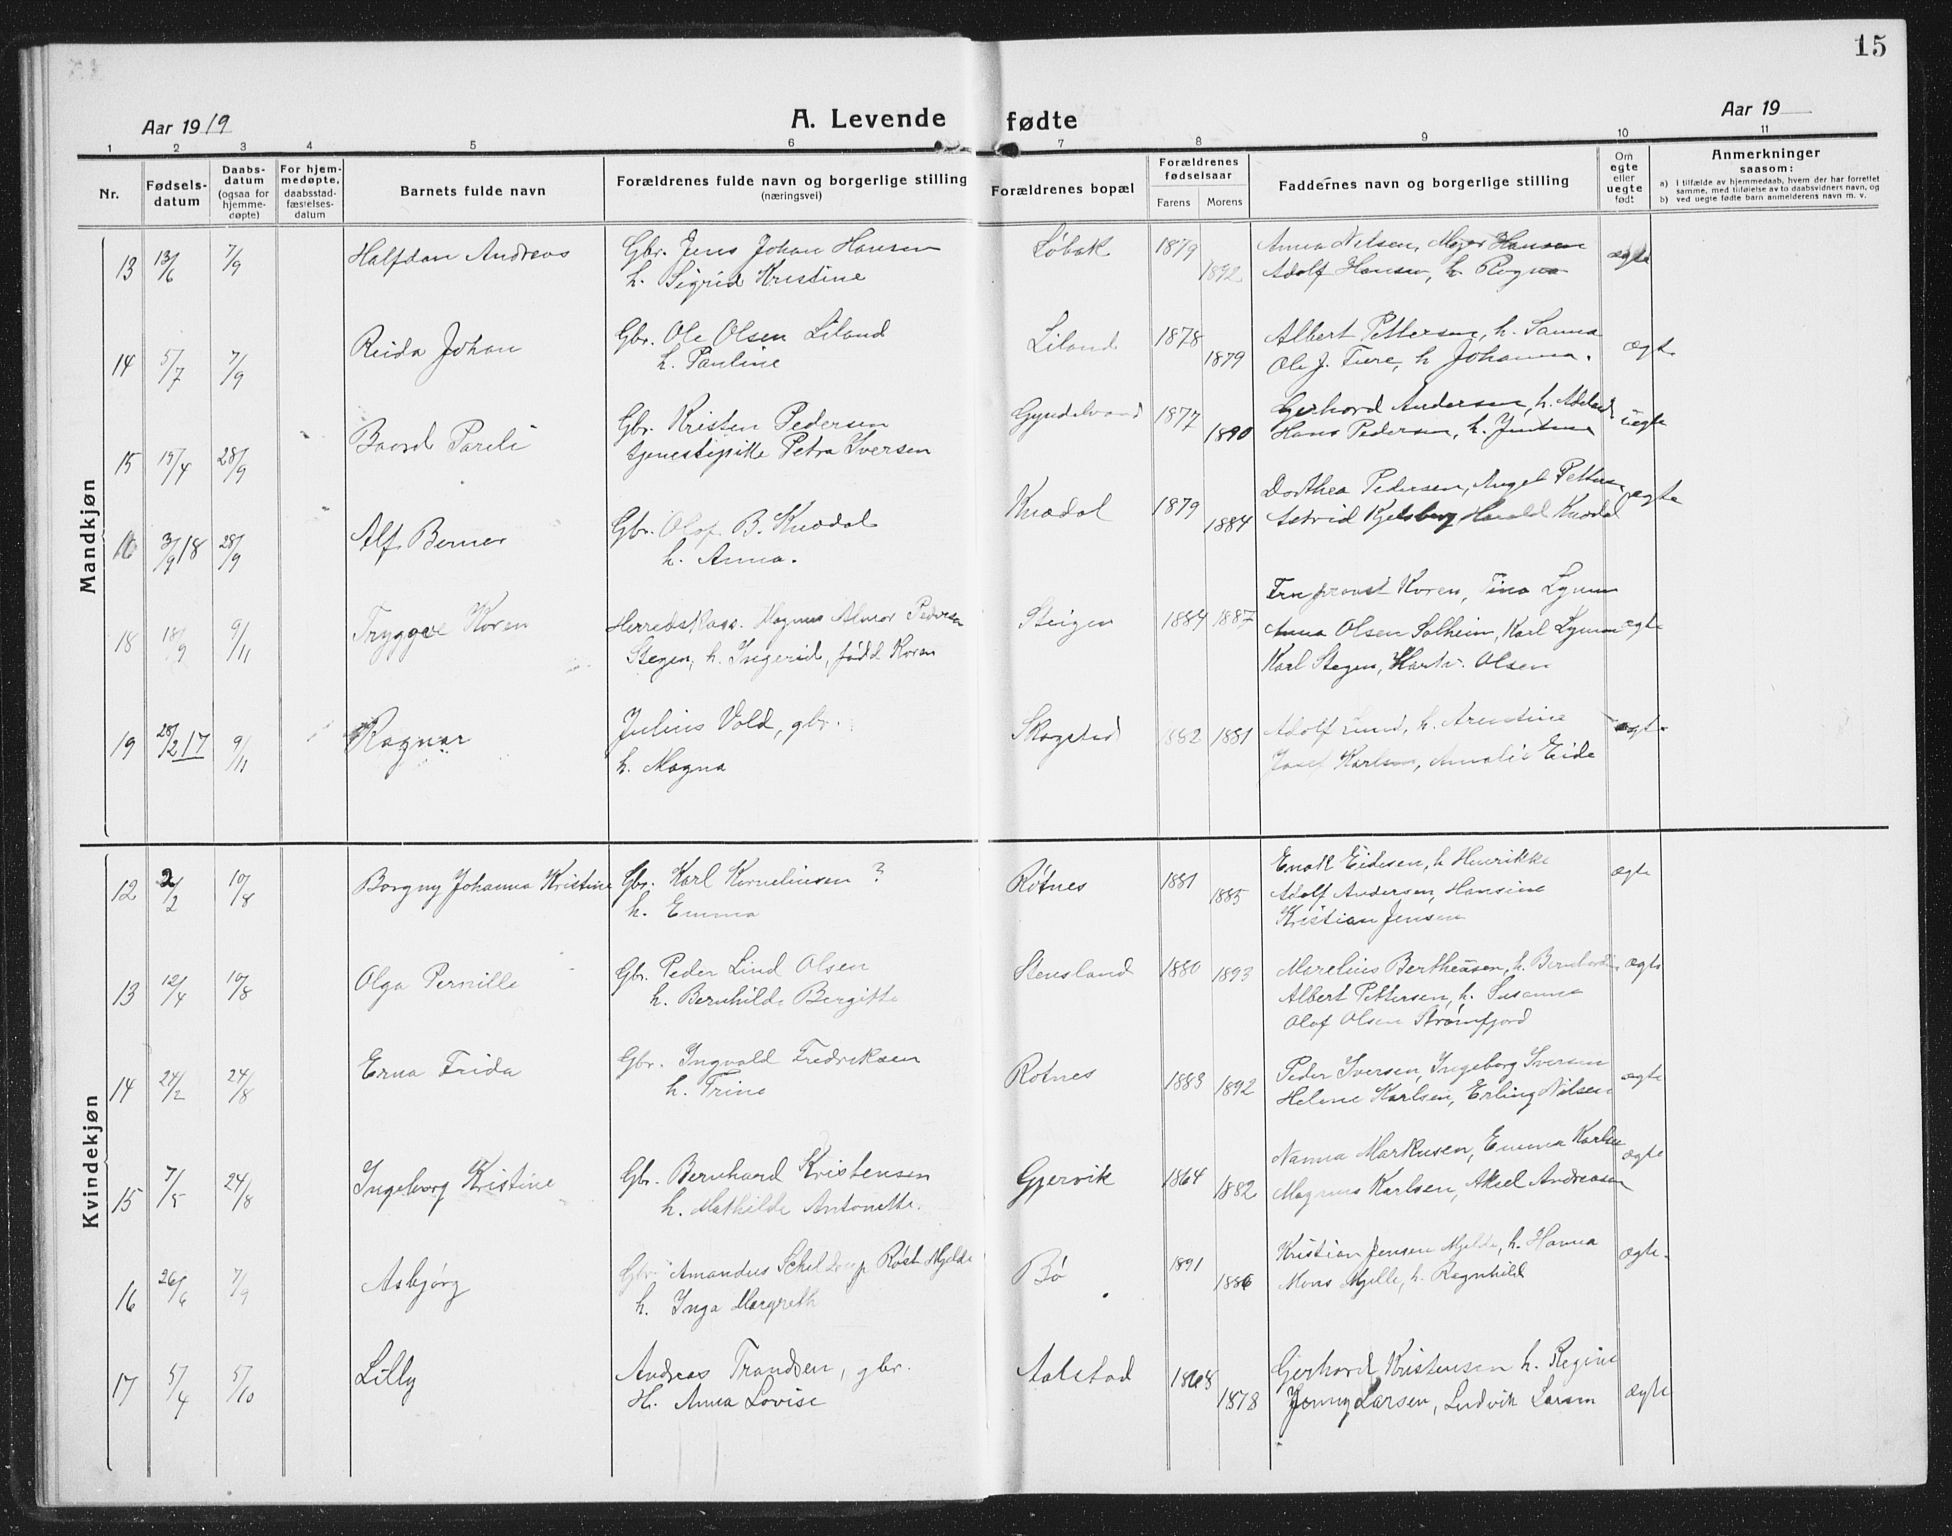 15
Aar 1919
A. Levende fødte
Aar 19
1 2 3 4 5 6 7 8 9 10 11
Nr.
Fødsels-
datum
Daabs-
datum
(ogsaa for
hjemme-
døpte)
For hjem-
medøpte,
daabsstad-
fæstelses-
datum
Barnets fulde navn
Forældrenes fulde navn og borgerlige stilling
(næringsvei)
Forældrenes bopæl
Forældrenes
fødselsaar
Farens Morens
Faddernes navn og borgerlige stilling
Om
egte
eller
uegte
født
Anmerkninger
saasom:
a) I tilfælde av hjemmedaab, hvem der har forrettet
samme, med tilføielse av to daabsvidners navn, og
b) ved uegte fødte barn anmelderens navn m. v.
Mandkjøn
13 13/6 7/9 Halfdan Andreas Gbr. Jens Johan Hansen Løbak 1879 Anna Nilsen, Hansen ægte
h. Sigrid Kristine 1892 Adolf Hansen, h. Ragna
14 5/7 7/9 Johan Gbr. Ole Olsen Liland Liland 1878 Albert Pettersen, h. Sanna ægte
h. Pauline 1879 Ole J. h Johanna.
15 15/4 28/9 Baard Pareli Gbr. Kristen Pedersen 1877 Gerhard Andersen, h. uægte
tjenestepike Petra Iversen 1890 Hans Pedersen, h.
16 3/9 18 28/9 Alf Berner Gbr. Olaf B. Knædal Knædal 1879 Dorthea Pedersen, ægte
h. Anna. 1884 Astrid Kjelsberg Harald Knædal
18 18/9 9/11 Tryggve Koren Herredskass. Magnus Almar Pedersen Steigen 1884 1887 Fru provst Koren, Tina
Stegen, h. Ingerid, født Koren Anna Olsen Solheim, Karl ægte
Karl Stegen, Hartv. Olsen
19 28/2 17 9/11 Ragnar Julius Vold, gbr. Skagstad 1882 1881 Adolf Lund, h. Arentine ægte
h. Magna Josef Karlsen, Amalie Eide
Kvindekjøn
12 2/2 10/8 Borgny Johanna Kristine Gbr. Karl Korneliussen ? Røtnes 1881 Enok Eidesen, h. Henrikke ægte
h. Emma 1885 Adolf Andersen, Hansine
Kristian Jensen
13 12/4 10/8 Olga Pernille Gbr. Peder Lind Olsen Stensland 1880 1893 Merelius Bertheusen, h. ægte
h. Bernhilde Bergitte Albert Pettersen, h. Susanna
Olaf Olsen Strømfjord
14 24/2 24/8 Erna Frida Gbr. Ingvald Fredriksen Røtnes 1883 1892 Peder Iversen, Ingeborg Iversen ægte
h. Trine Helene Karlsen, Erling Nilsen
15 7/5 24/8 Ingeborg Kristine Gbr. Bernhard Kristensen Gjervik 1864 Nanna Markusen, Emma Karlsen ægte
h. Mathilde Antonette. 1882 Magnus Karlsen, Aksel Andreasen
16 26/6 7/9 Asbjørg Gbr. Amandus Schelderup Røst Mjelde Bø 1891 Kristian Jensen Mjelde, h. Hanna ægte.
h. Inga Margreth 1886 Mons Mjelle, h. Ragnhild
17 5/4 5/10 Lilly Andreas Trandsen, gbr. Aalstad 1868 Gerhard Kristensen h. Regine
H. Anna Lovise 1878 Jenny Larsen, Ludvik Larsen ægte